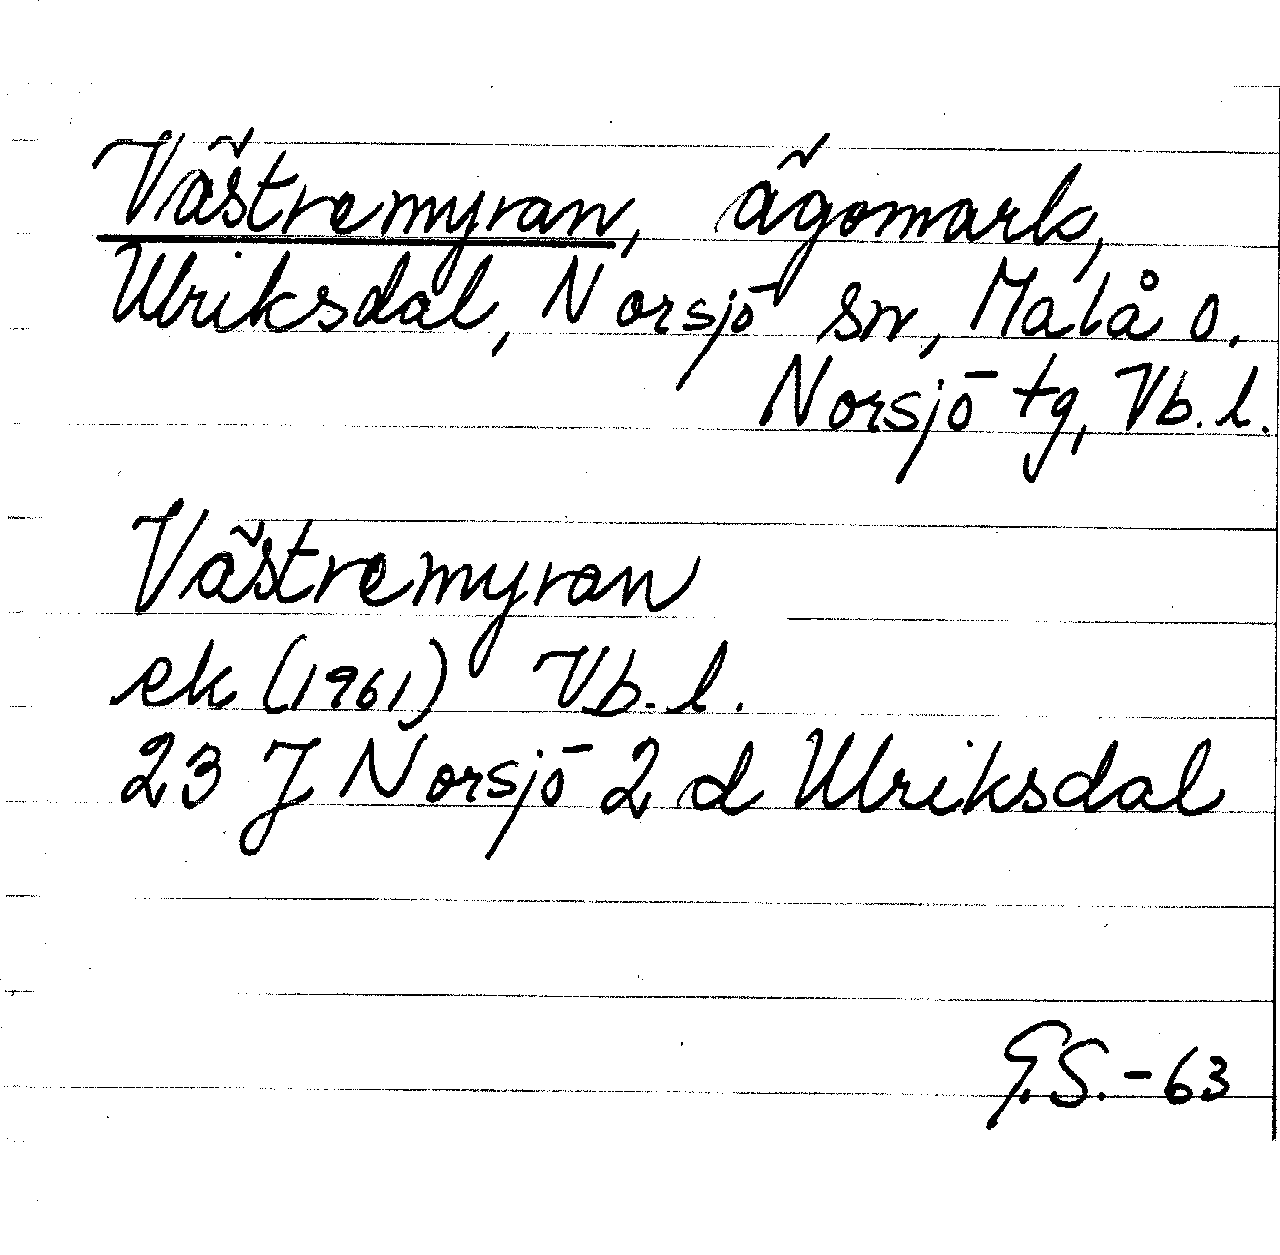 Västremyran, ägomark,
Ulriksdal, Norsjö sn, Malå o.
Norsjö tg, Vb. l.
Västremyran
ek (1961) Vb. l.
23 J Norsjö 2 d Ulriksdal
G.S. - 63